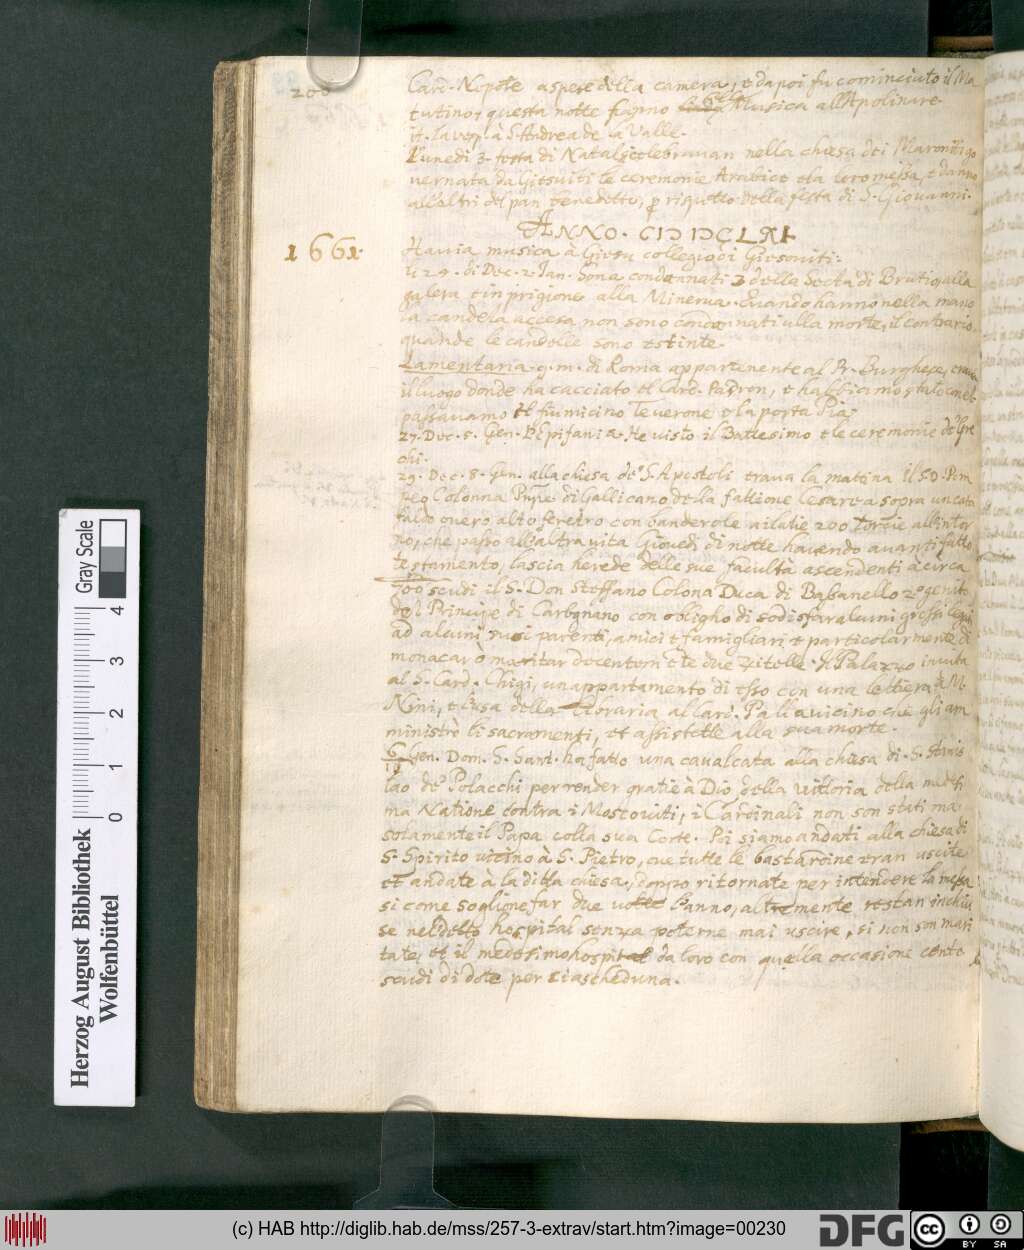 200
Card. Nepote a spese della camera, e dapoi fu cominciato il Ma
tutino, questa notte fanno Musica all'Apolinare.
à S. Andrea de la Valle.
Lunedi 3. festa di Natale celebravan nella chiesa dei Maroniti go
vernata da Giesuiti le ceremonie Arabice e la loro messa, e danno
agl'altri del pan benedetto, della festa di S. Giovanni.
ANNO. CIↃ IↃC LXI.
1661.
Havvia musica à Giesu collegio di Giesuiti.
24. di Dec. 2. Jan. Sono condannati 3 della Setta di
galera e in prigione alla Minerva. Quando hanno nella mano
la candela accesa non sono condannati alla morte, il contrario
quando le candelle sono estinte.
Lamentana. m. di Roma appartenente al Pr. Burghese, era
il luogo donde ha cacciato el Card. Patron, e
passavamo el fiumicino Teverone e la porta Pia.
27. Dec. 5. Gen. l'Epifania. He visto il Battesimo e le ceremonie de' Gre
chi.
29. Dec. 8. Gen. alla chiesa de' S. Apostoli stava la mattina il S. D. Pom
peo Colonna Pnpe di Gallicano della fattione Cesarea sopra un cata
faldo overo alto feretro con banderole 200 Torcie all'intor
no, che passò all'altra vita Giovedi di notte havendo avanti fatto
testamento, lascia herede delle sue facultà ascendenti à circa
700 scudi il S. Don Steffano Colona Duca di Basanello 2°genito
del Principe di Carbgnano con obligho di sodisfar alcuni grossi legati
ad alcuni suoi parenti, amici e famigliari e particolarmente di
monacar ò maritar docentem. e le due zitelle di Palazzo invita
al S. Card. Chigi, un appartamento di esso con una lettiera à M.
Nini, e l'usa della al Card. Pallavicino che gli am
ministrè li sacramenti, et assistette alla sua morte.
Gen. Dom. S. Sant. ha fatto una cavalcata alla chiesa di S. Stanis
lao de' Polacchi per render gratie à Dio della vittoria della medesi
ma Natione contra i Moscoviti, i Cardinali non son stati ma
solamente il Papa colla sua Corte. Poi siamo andati alla chiesa di
S. Spirito vicino à S. Pietro, ove tutte le bastardine eran uscite
et andate à la ditta chiesa, doppo ritornate per intendere la messa
si come soglione far due volte l'anno, altremente restan inchiu
se nel detto hospital senza poterne mai uscire, si non son mari
tate, et il medesimo hospital da loro con quella occasione cento
scudi di dote per ciascheduna.
Gray Scale
0 1 2 3 4
Herzog August Bibliothek
Wolfenbüttel
(c) HAB http://diglib.hab.de/mss/257-3-extrav/start.htm?image=00230
DFG
cc BY SA